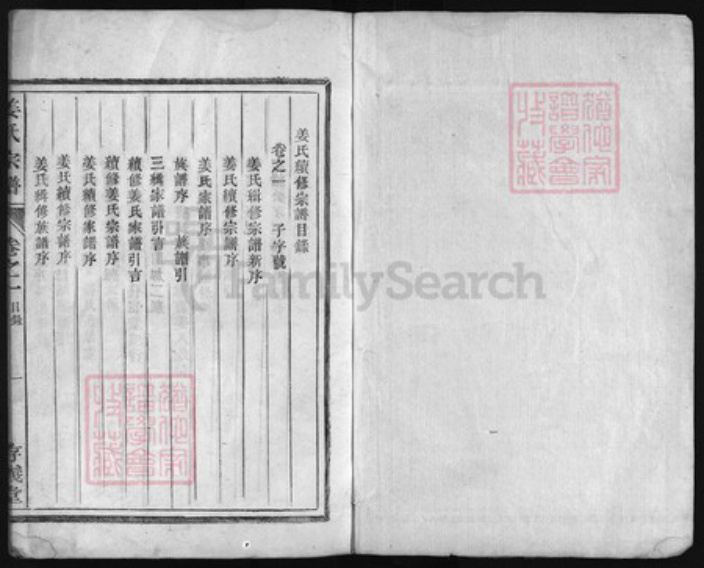 姜氏續修宗譜目錄
卷之一 子字號
姜氏緝修宗譜新序
姜氏續修宗譜序
姜氏家譜序
族譜序 族譜引
三橋家譜引言
續修姜氏家譜引言
續修姜氏宗譜序
姜氏續修家譜序
姜氏續修宗譜序
姜氏緝修族譜序
姜氏宗譜
卷之一
目錄
一
存義堂
FamilySearch